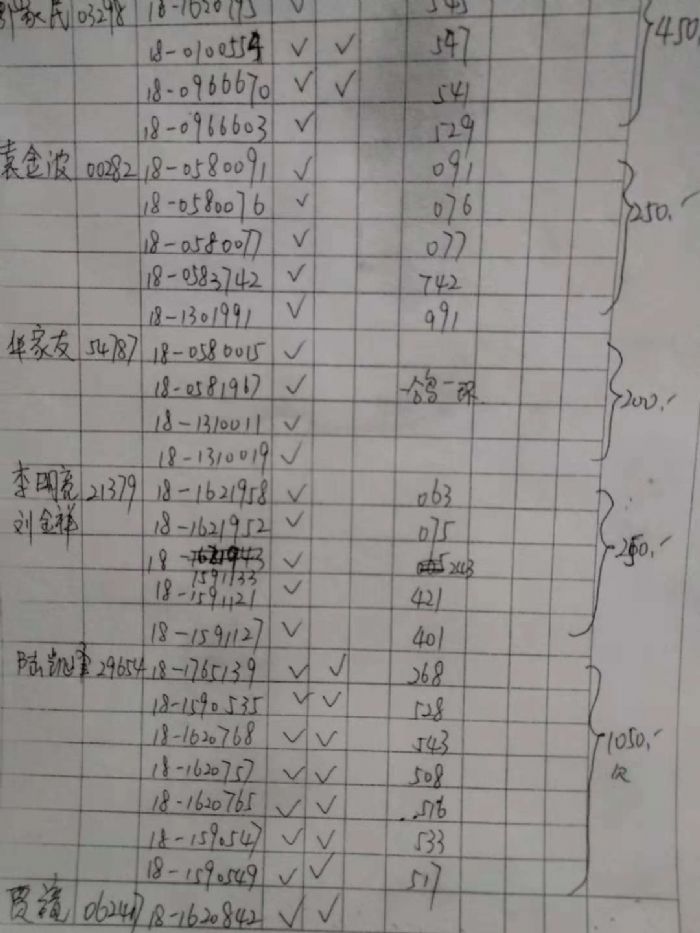 家民 03298 18-1620795 ✓ 545
18-0100554 ✓ ✓ 547 450.
18-0966670 ✓ ✓ 541
18-0966603 ✓ 529
袁金波 00282 18-0580091 ✓ 091
18-0580076 ✓ 076 250.-
18-0580077 ✓ 077
18-0583742 ✓ 742
18-1301991 ✓ 991
华家友 54787 18-0580015 ✓
18-0581967 ✓ 一 200.-
18-1310011 ✓
18-1310019 ✓
李明亮 21379 18-1621958 ✓ 063
刘金祥 18-1621952 ✓ 075
18- 1591133 ✓ 243 250.-
18-1591121 ✓ 421
18-1591127 ✓ 401
陆凯 29654 18-1765139 ✓ ✓ 268
18-1590535 ✓ ✓ 528
18-1620768 ✓ ✓ 543 1050.-
18-1620757 ✓ ✓ 508
18-1620765 ✓ ✓ 516
18-1590547 ✓ ✓ 533
18-1590549 ✓ ✓ 517
贾 062417 18-1620842 ✓ ✓